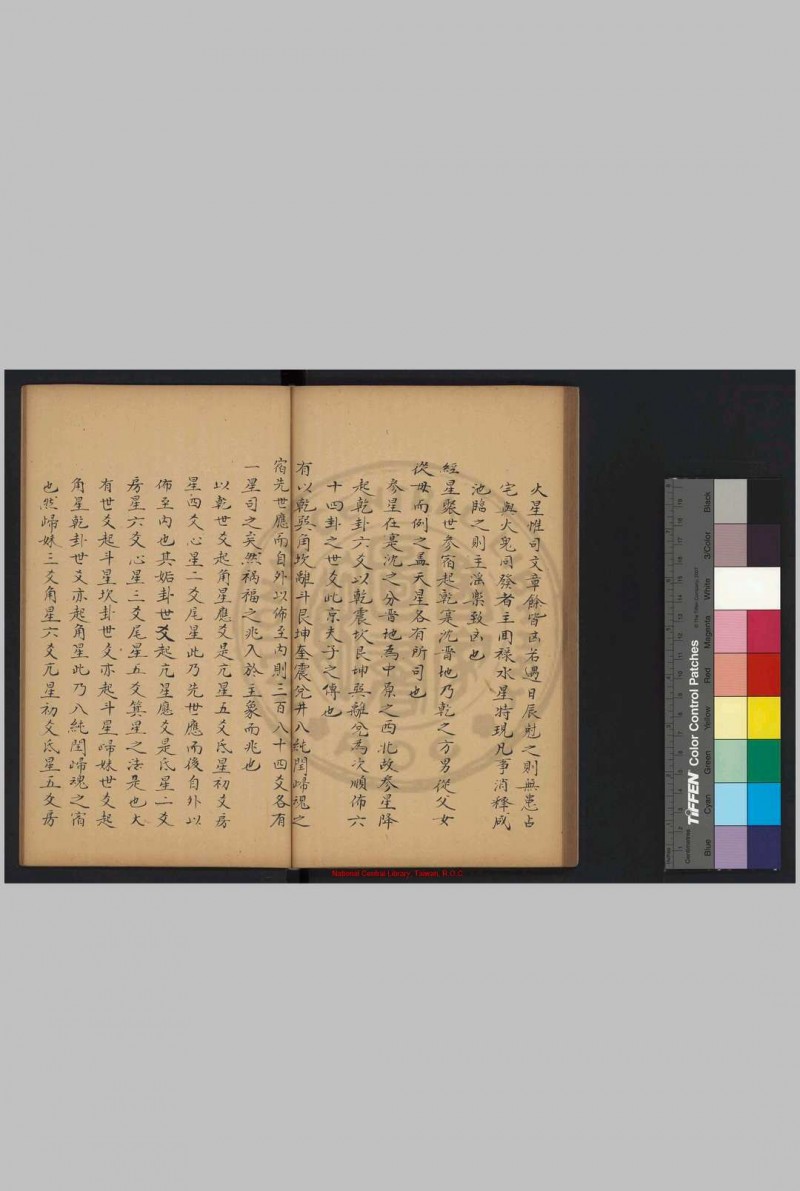 火星惟司文章餘皆凶若遇日辰尅之則無患占
宅與火鬼同發者主囬祿水星特現凡事消釋咸
池臨之則主滛樂致凶也
經星裝世參宿起乾寔沈晋地乃乾之方男從父女
從毋而例之盖天星各有所司也
參星在寔沈之分晋地為中原之西北故參星降
起乾卦六爻以乾震坎艮坤巽離兊為次順佈六
十四卦之世爻此京夫子之傳也
有以乾巽角坎離斗艮坤奎震兊井八純閏歸魂之
宿先世應而自外以佈至内則三百八十四爻各有
一星司之矣然禍福之兆入於主象而兆也
以乾世爻起角星應爻是亢星五爻氐星初爻房
星四爻心星二爻尾星此乃先世應而後自外以
佈至内也其姤卦世爻起亢星應爻是氐星二爻
房星六爻心星三爻尾星五爻箕星之法是也大
有世爻起斗星坎卦世爻亦起斗星歸妹世爻起
角星乾卦世爻亦起角星此乃八純閏歸魂之宿
也然歸妹三爻角星六爻亢星初爻氐星五爻房
National Central Library, Taiwan, R.O.C
TIFFEN Color Control Patches
© The Tiffen Company, 2007
Centimetres
Blue
Cyan
Green
Yellow
Red
Magenta
White
3/Color
Black